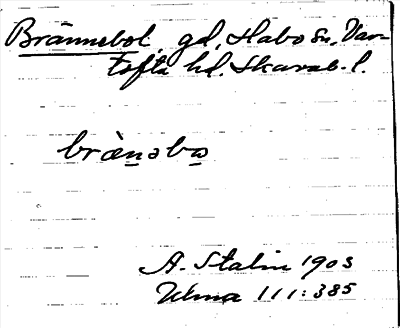 Brännebol, gd, Habo sn, Var-
tofta hd. Skarab. l.
brænəbω
A. Stalin 1903
Ulma 111:385